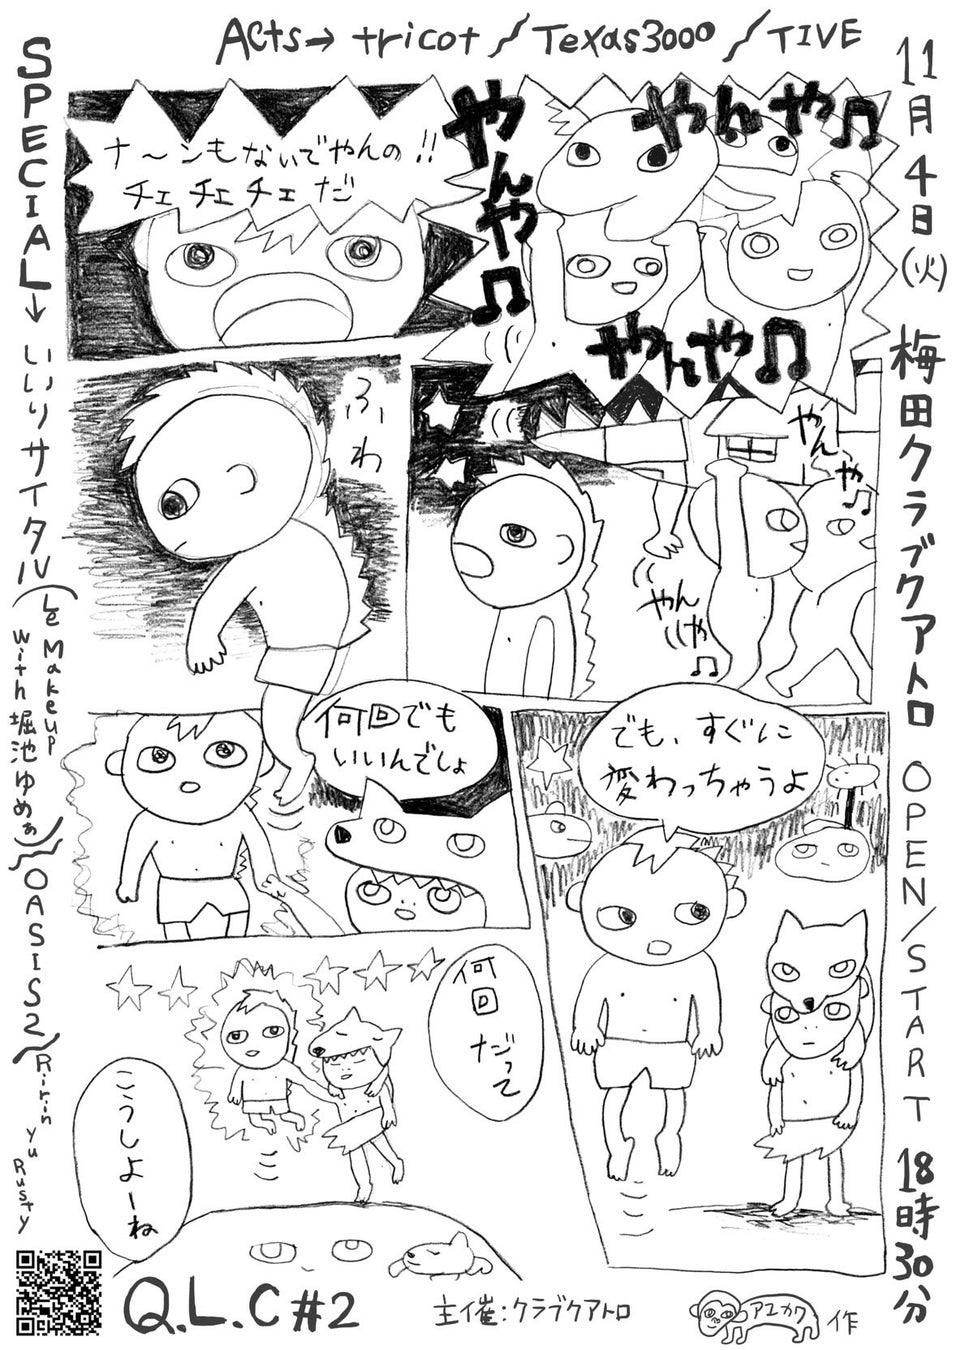 Acts→ tricot / Texas3000 / TIVE
SPECIAL→ いいリサイタル (Le Makeup with 堀池ゆめぁ) / OASIS2 / Ririn yu Rusty
11月4日(火) 梅田クラブクアトロ OPEN/START 18時30分
やんや♫
やんや♫
やんや♫
ナ～ンもないでやんの!!
チェ チェ チェ だ
やんや♫
やんや♫
ふわ
でも、すぐに
変わっちゃうよ
何回でも
いいんでしょ
何回だって
こうしよーね
Q.L.C #2
主催:クラブクアトロ
アユカワ作